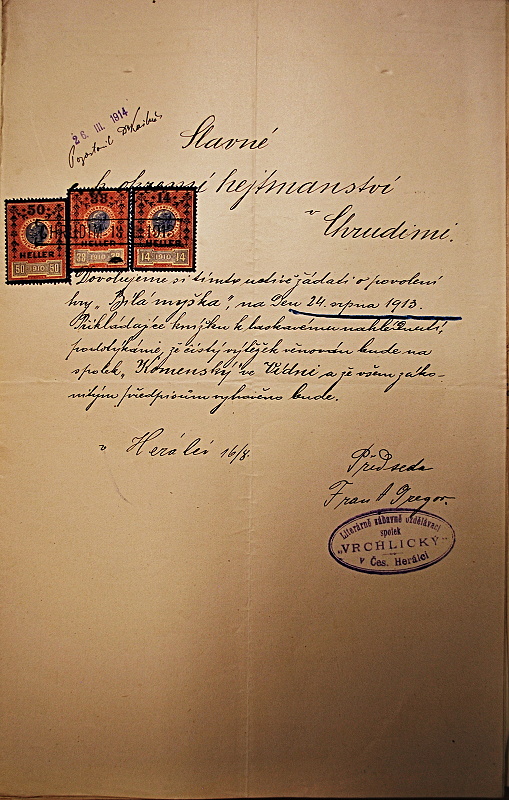 26. III. 1914
Slavné
c. k. okresní hejtmanství
v Chrudimi.
50 33 14
HELLER HELLER HELLER
50 1910 50 33 1910 14 1910 14
Dovolujeme si tímto uctivě žádati o povolení
hry „Bílá myška", na den 24. srpna 1913.
Přikládajíce knížku k laskavému nahlédnutí,
podotýkáme, že čistý výtěžek věnován bude na
spolek „Komenský" ve Vídni a že všem záko-
nitým předpisům vyhověno bude.
v Herálci 16/8.
Předseda
Frant Gregor.
Literárně zábavně vzdělávací
spolek
„VRCHLICKÝ"
v Čes. Herálci